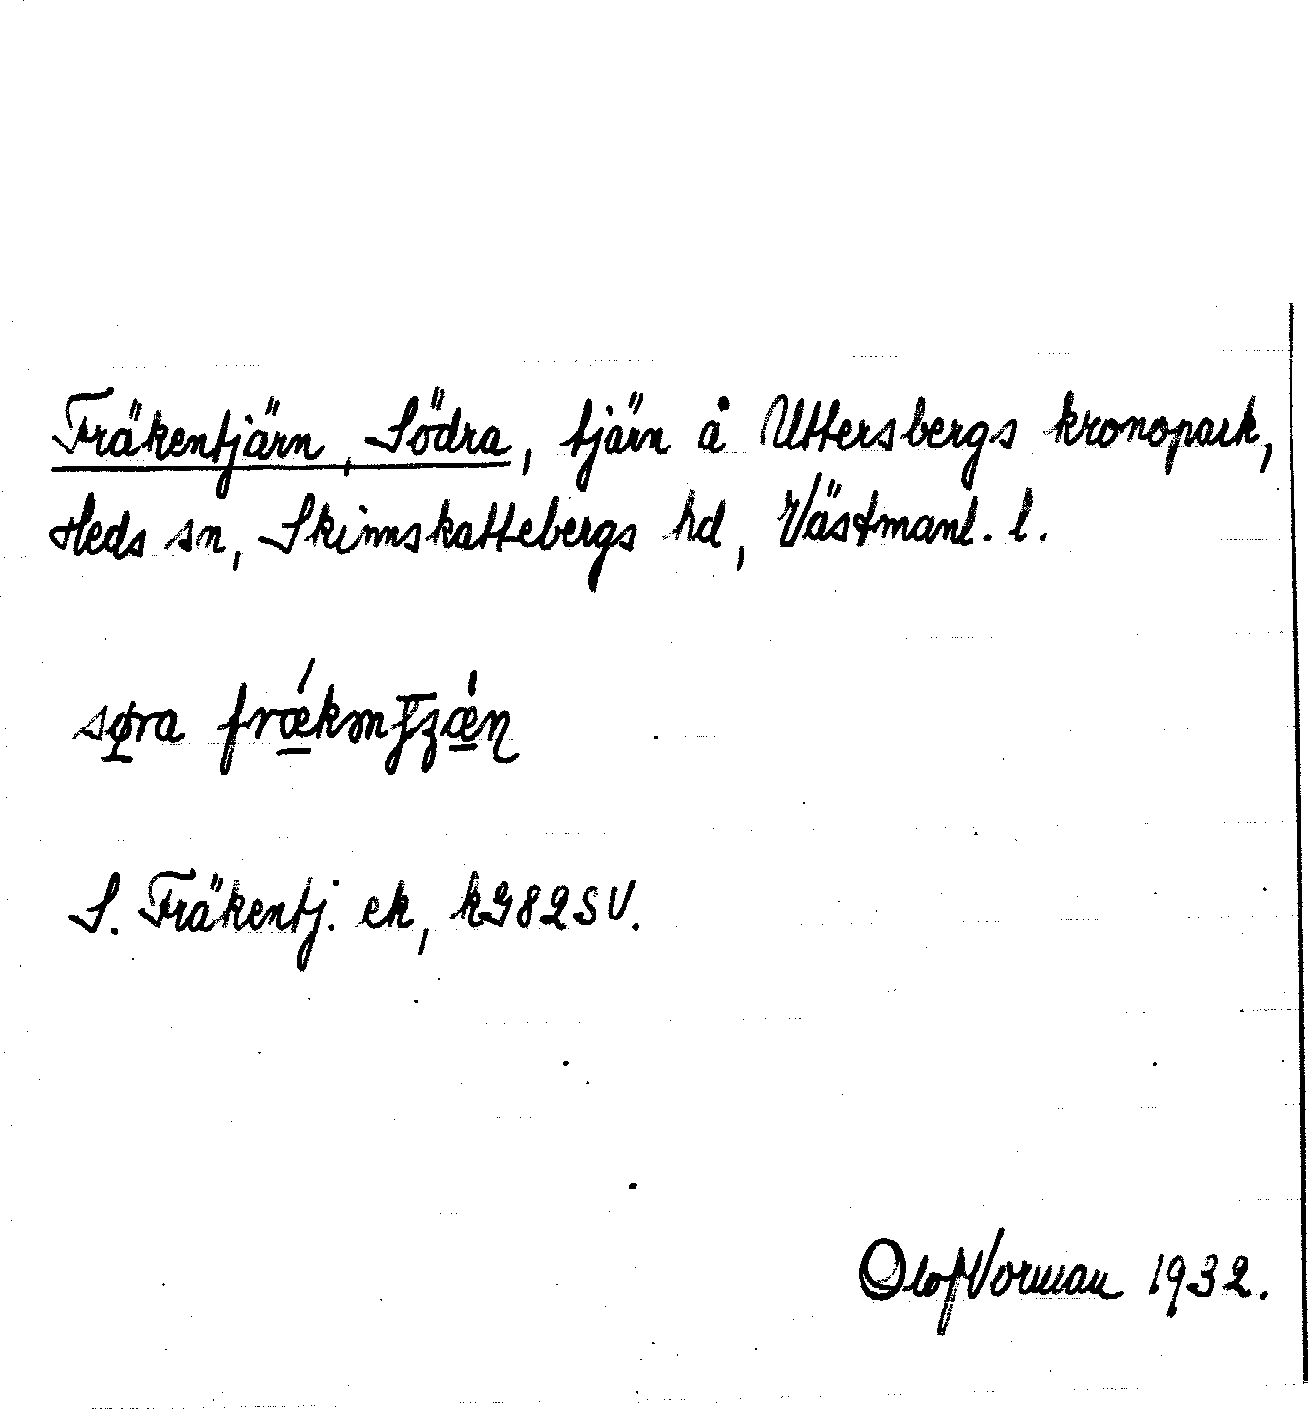 Fräkentjärn, Södra, tjärn å Uttersbergs kronopark,
Heds sn, Skinnskattebergs hd, Västmanl. l.
søra
S. Fräkentj. ek, k982SV.
Olof Norman 1932.